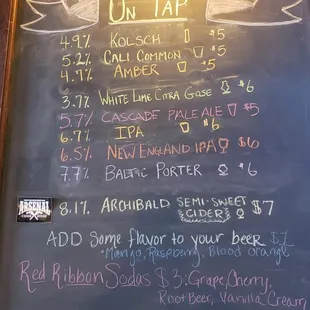 ON TAP
4.9% KOLSCH $5
5.2% CALI COMMON $5
4.7% AMBER $5
3.7% WHITE LIME CITRA GOSE $6
5.7% CASCADE PALE ALE $5
6.7% IPA $6
6.5% NEW ENGLAND IPA $6
7.7% BALTIC PORTER $6
ARSENAL
8.1% ARCHIBALD SEMI-SWEET CIDER $7
ADD Some flavor to your beer $1
-Mango, Raspberry, Blood orange
Red Ribbon Sodas $3: Grape, Cherry,
Root Beer, Vanilla Cream